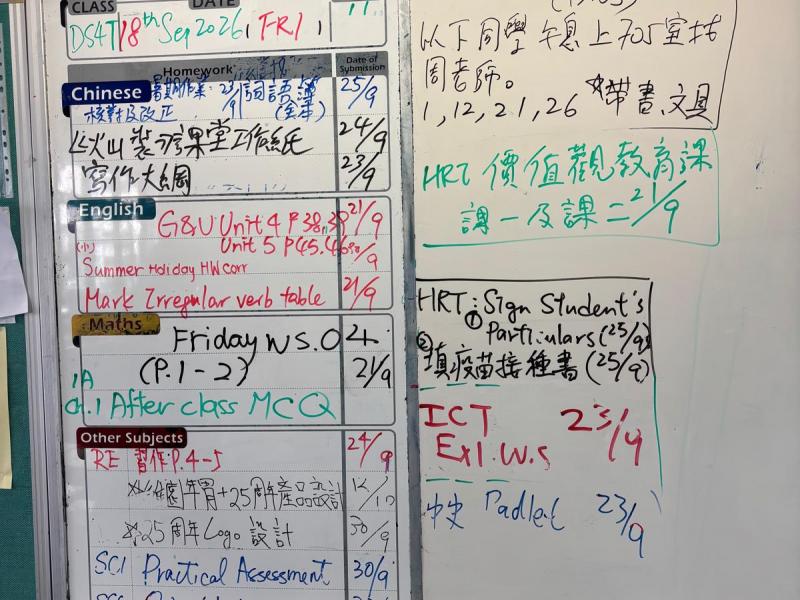 CLASS DATE
DS4T 18th Sep 2026, FRI, 11
Homework Date of Submission
Chinese 23/9 詞語 25/9
核對及改正
火山 課堂工作紙 24/9
寫作大綱 23/9
English G&U: Unit 4 P38,39 21/9
Unit 5 P45,46
Summer Holiday HW corr
Mark Irregular verb table 21/9
Maths Friday WS.04
(P.1-2) 21/9
1A
Ch.1 After class MCQ
Other Subjects
RE 習作P.4-5 24/9
+25周年產品設計
25周年Logo設計 30/9
SCI Practical Assessment 30/9
以下同學午息上705室找
周老師。
1,12,21,26 *帶書、文具
HRT 價值觀教育課
課一及課二 21/9
HRT: ① Sign Student's
Particulars (25/9)
② 填疫苗接種書 (25/9)
ICT 23/9
Ex1 W.S
中史 Padlet 23/9